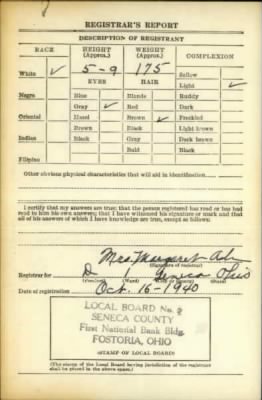 REGISTRAR'S REPORT
DESCRIPTION OF REGISTRANT
RACE HEIGHT (Approx.) WEIGHT (Approx.) COMPLEXION
White ✓ 5-9 175 Sallow
EYES HAIR Light ✓
Negro Blue Blonde Ruddy
Gray ✓ Red Dark
Oriental Hazel Brown ✓ Freckled
Brown Black Light brown
Indian Black Gray Dark brown
Bald Black
Filipino
Other obvious physical characteristics that will aid in identification
I certify that my answers are true; that the person registered has read or has had
read to him his own answers; that I have witnessed his signature or mark and that
all of his answers of which I have knowledge are true, except as follows:
Mrs. Margaret
(Signature of registrar)
Registrar for D 1 Seneca Ohio
(Precinct) (Ward) (State)
Date of registration Oct. 16-1940
LOCAL BOARD No. 2
SENECA COUNTY
First National Bank Bldg.
FOSTORIA, OHIO
(STAMP OF LOCAL BOARD)
(The stamp of the Local Board having jurisdiction of the registrant
shall be placed in the above space)